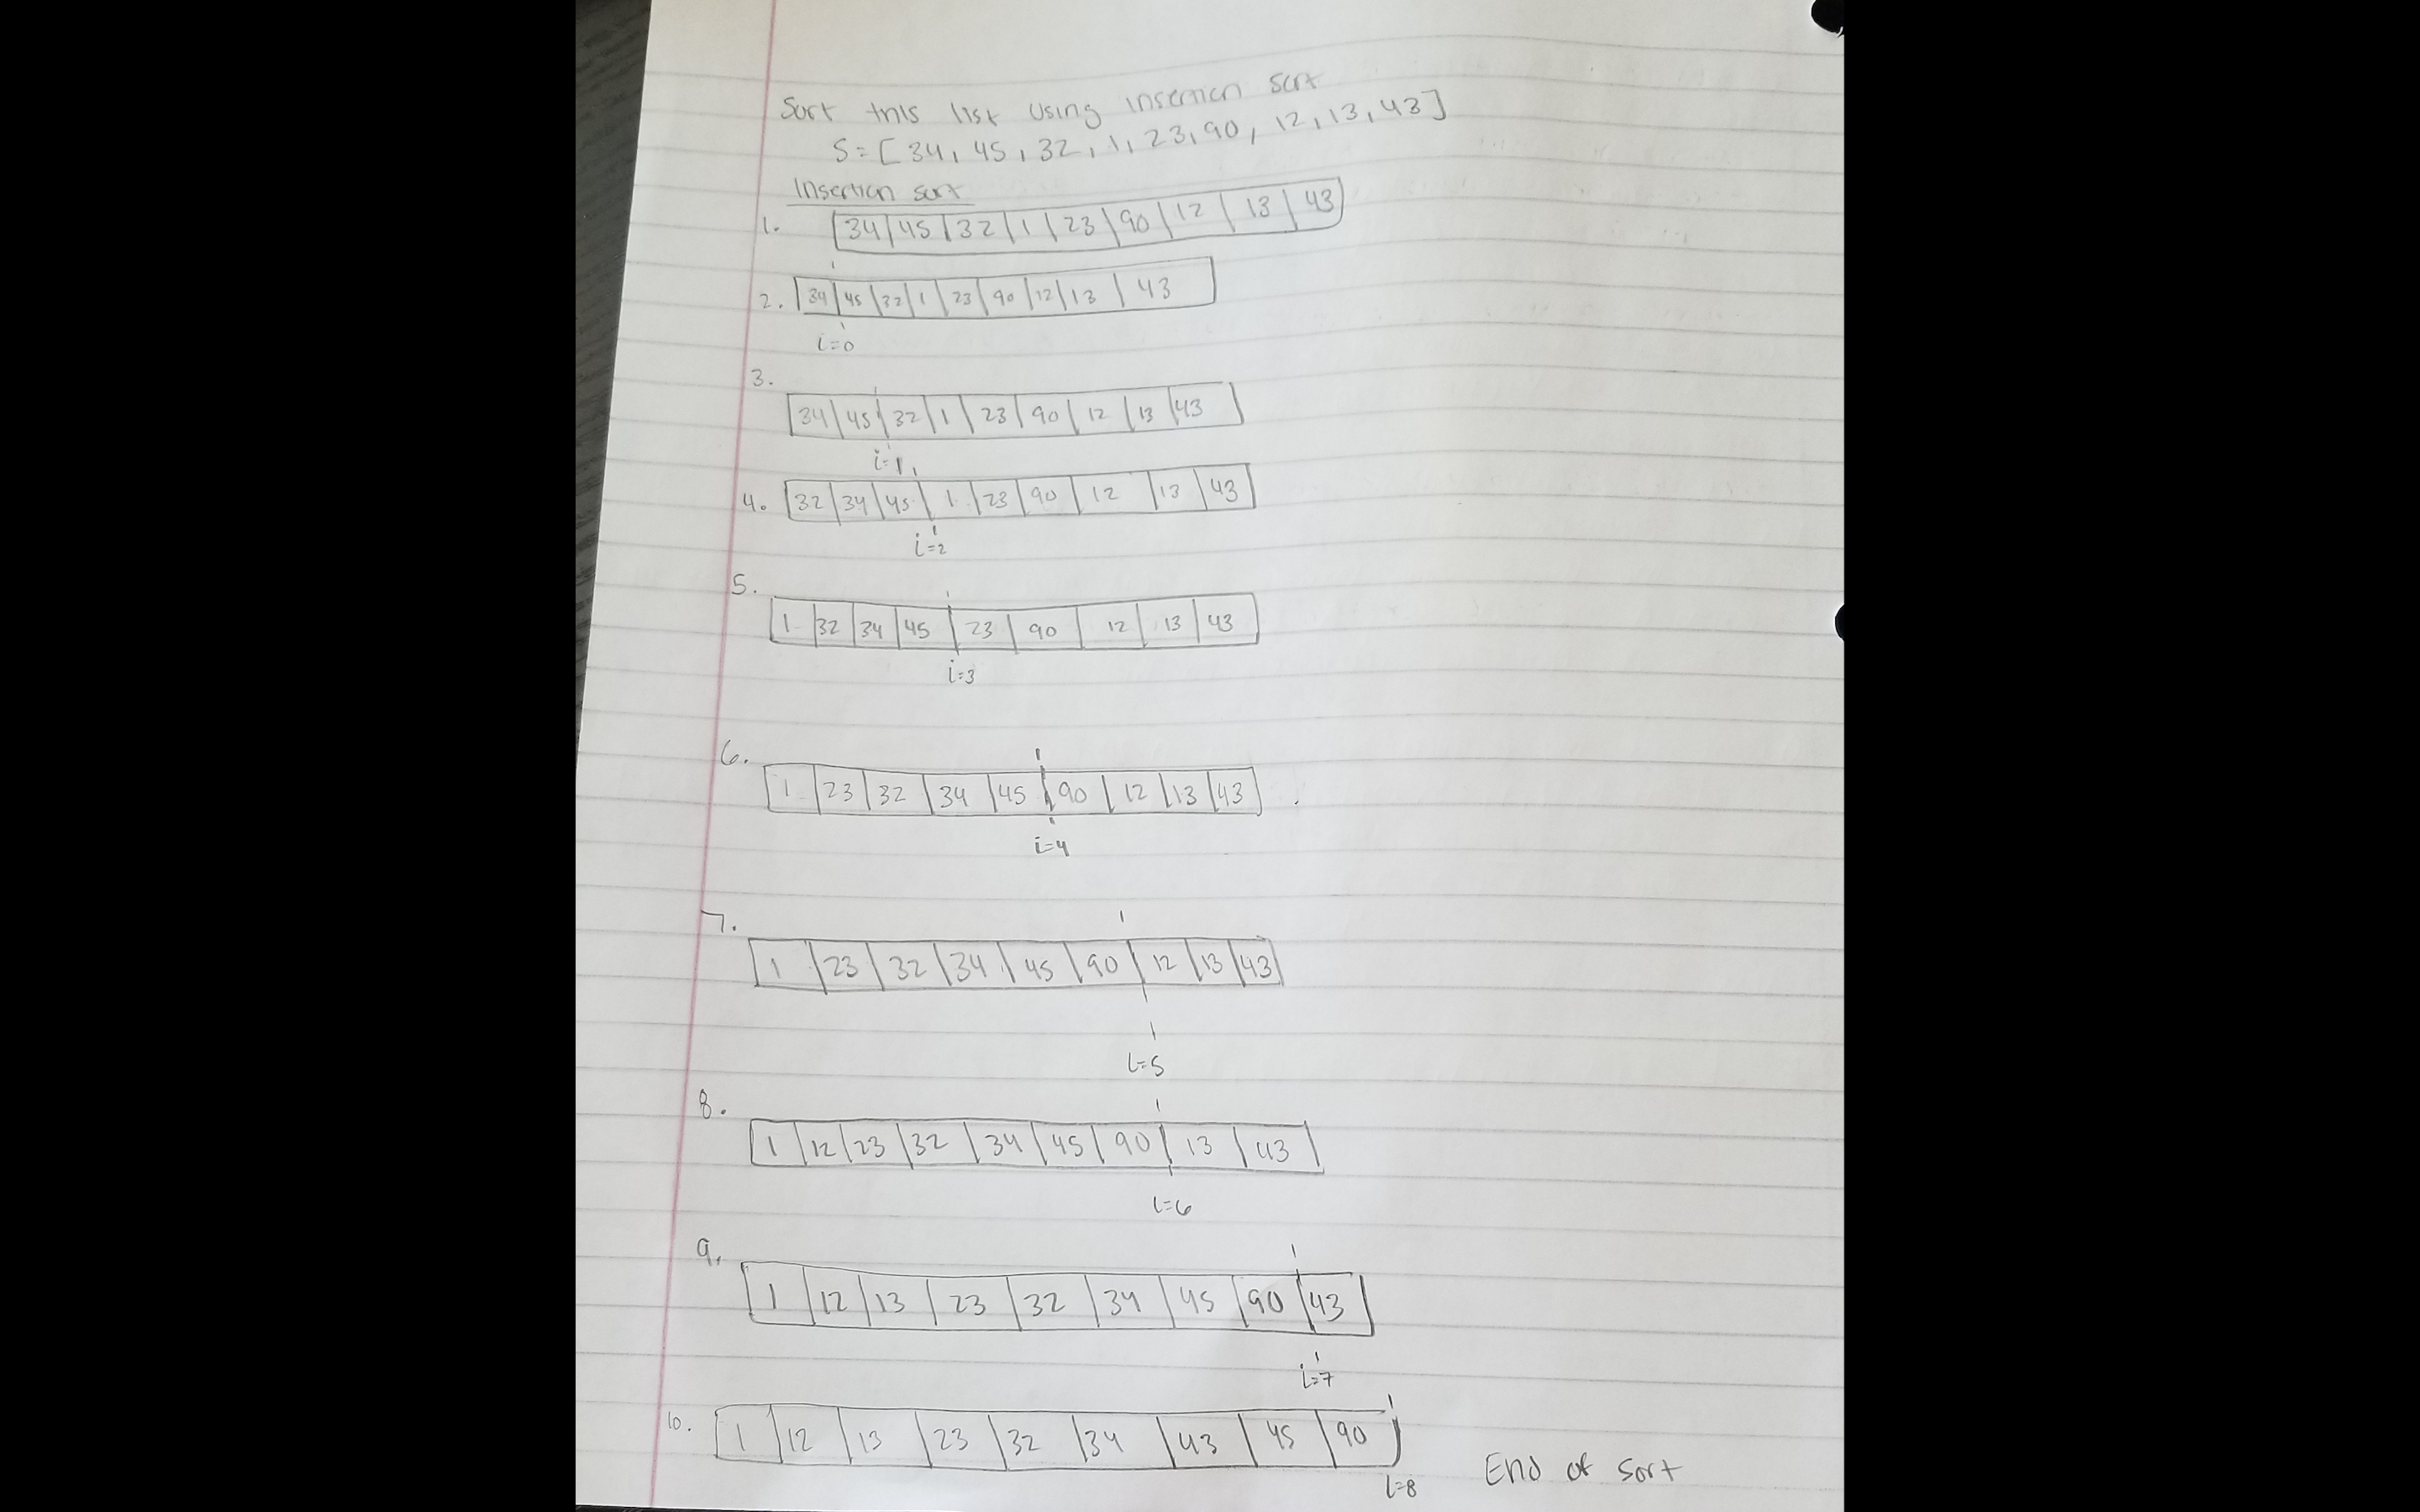 Sort this list using insertion sort
S=[34, 45, 32, 1, 23, 90, 12, 13, 43]
Insertion sort
1. 34 | 45 | 32 | 1 | 23 | 90 | 12 | 13 | 43
2. 34 | 45 | 32 | 1 | 23 | 90 | 12 | 13 | 43
i=0
3.
34 | 45 | 32 | 1 | 23 | 90 | 12 | 13 | 43
i=1
4. 32 | 34 | 45 | 1 | 23 | 90 | 12 | 13 | 43
i=2
5.
1 | 32 | 34 | 45 | 23 | 90 | 12 | 13 | 43
i=3
6.
1 | 23 | 32 | 34 | 45 | 90 | 12 | 13 | 43
i=4
7.
1 | 23 | 32 | 34 | 45 | 90 | 12 | 13 | 43
i=5
8.
1 | 12 | 23 | 32 | 34 | 45 | 90 | 13 | 43
i=6
9.
1 | 12 | 13 | 23 | 32 | 34 | 45 | 90 | 43
i=7
10. 1 | 12 | 13 | 23 | 32 | 34 | 43 | 45 | 90
i=8 End of sort